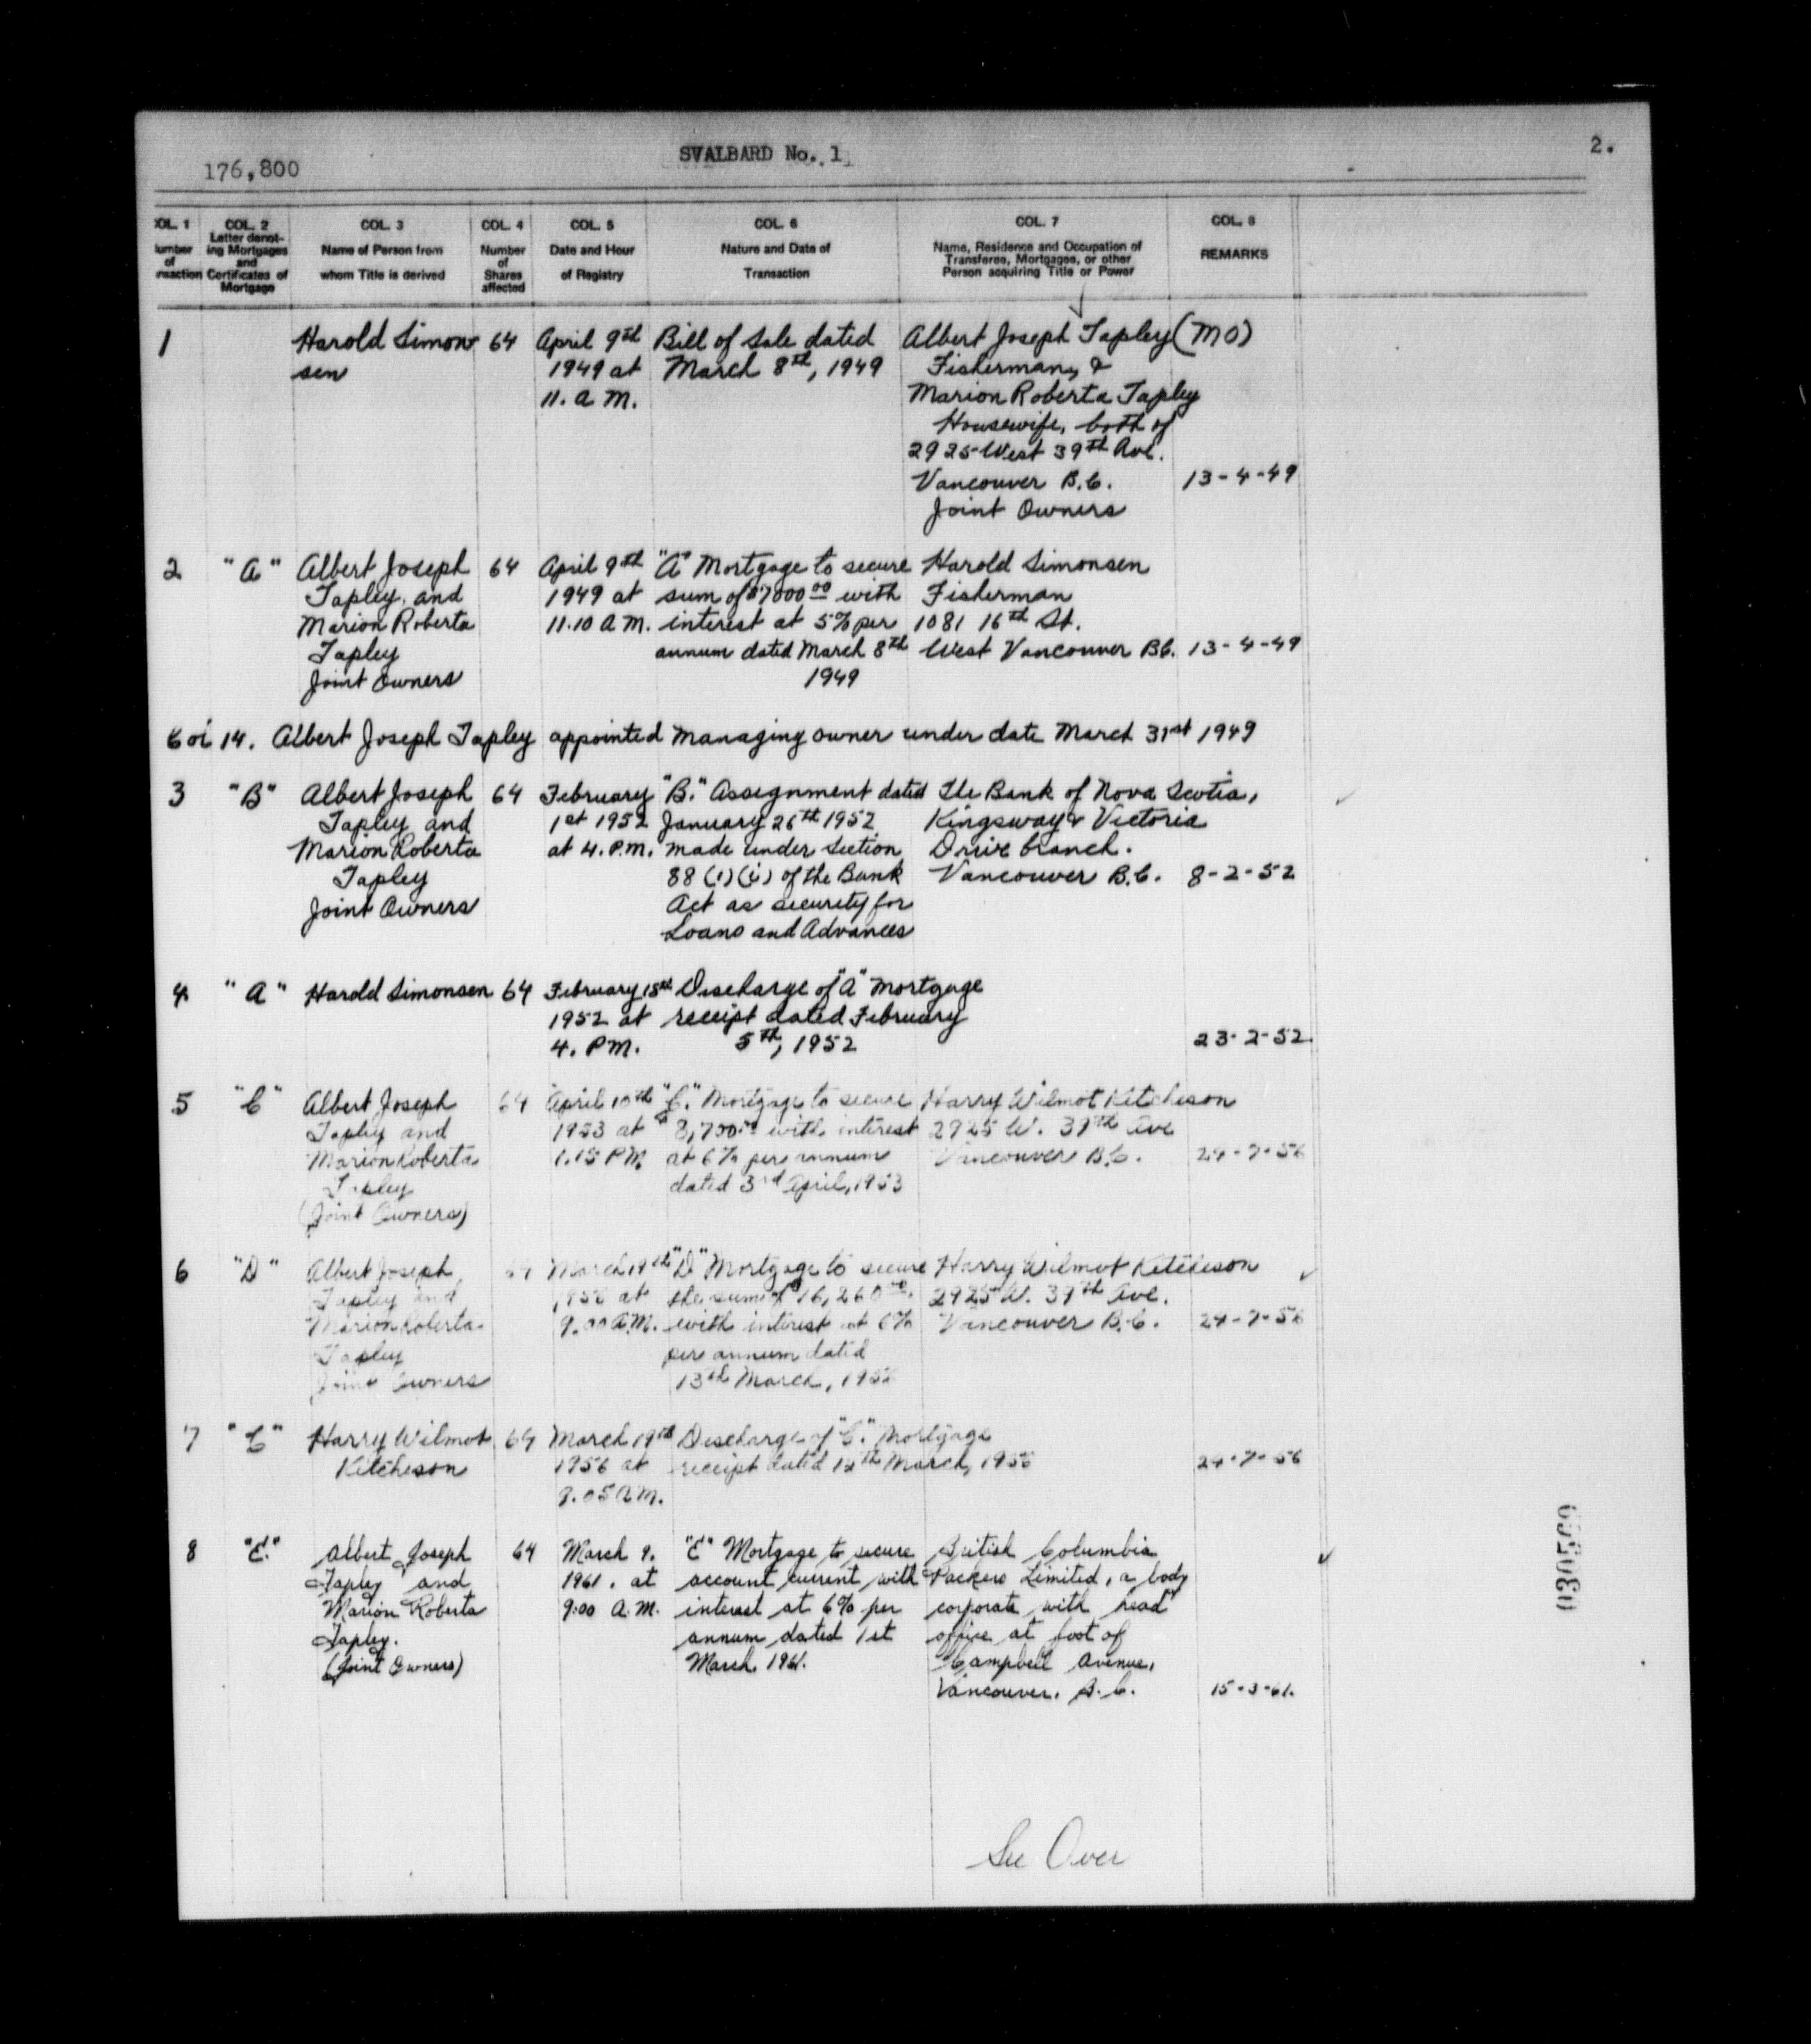 176,800
SVALBARD No. 1
2.
COL. 1
Number of Transaction
COL. 2
Letter denoting Mortgages and Certificates of Mortgage
COL. 3
Name of Person from whom Title is derived
COL. 4
Number of Shares affected
COL. 5
Date and Hour of Registry
COL. 6
Nature and Date of Transaction
COL. 7
Name, Residence and Occupation of Transferee, Mortgagee, or other Person acquiring Title or Power
COL. 8
REMARKS
1
Harold Simon
sen
64
April 9th
1949 at
11. A M.
Bill of Sale dated
March 8th, 1949
Albert Joseph Tapley (MO)
Fisherman, &
Marion Roberta Tapley
Housewife, both of
2925 West 39th Ave.
Vancouver B.C.
Joint Owners
13-4-49
2
"A"
Albert Joseph
Tapley and
Marion Roberta
Tapley
Joint Owners
64
April 9th
1949 at
11.10 A M.
"A" Mortgage to secure
sum of $7000.00 with
interest at 5% per
annum dated March 8th
1949
Harold Simonsen
Fisherman
1081 16th St.
West Vancouver BC.
13-4-49
14. Albert Joseph Tapley appointed Managing owner under date March 31st 1949
3
"B"
Albert Joseph
Tapley and
Marion Roberta
Tapley
Joint Owners
64
February
1st 1952
at 4. P.M.
"B." Assignment dated
January 26th 1952
made under Section
88 (1)(i) of the Bank
Act as security for
Loans and Advances
The Bank of Nova Scotia,
Kingsway & Victoria
Drive branch.
Vancouver B.C.
8-2-52
4
"A"
Harold Simonsen
64
February
1952 at
4. PM.
Discharge of "A" Mortgage
receipt dated February
5th, 1952
23-2-52.
5
"C"
Albert Joseph
Tapley and
Marion Roberta
Tapley
(Joint Owners)
64
April 10th
1953 at
1.15 PM
"C." Mortgage to secure
with interest
at 6% per annum
dated 3rd April, 1953
Harry Wilmot Kitcheson
2925 W. 39th Ave
Vancouver B.C.
24-7-56
6
"D"
Albert Joseph
Tapley and
Marion Roberta
Tapley
Joint Owners
64
March 19th
1956 at
9.00 A.M.
"D" Mortgage to secure
the sum of $16,260.00
with interest at 6%
per annum dated
13th March, 1956
Harry Wilmot Kitcheson
2925 W. 39th Ave.
Vancouver B.C.
24-7-56
7
"C"
Harry Wilmot
Kitcheson
64
March 19th
1956 at
9.05 AM.
Discharge of "C." Mortgage
receipt dated March, 1956
24-7-56
8
"E."
Albert Joseph
Tapley and
Marion Roberta
Tapley.
(Joint Owners)
64
March 9.
1961. at
9:00 A.M.
"E" Mortgage to secure
account current with
interest at 6% per
annum dated 1st
March, 1961.
British Columbia
Packers Limited, a body
corporate with head
office at foot of
Campbell Avenue,
Vancouver. B.C.
15-3-61.
030569
See Over